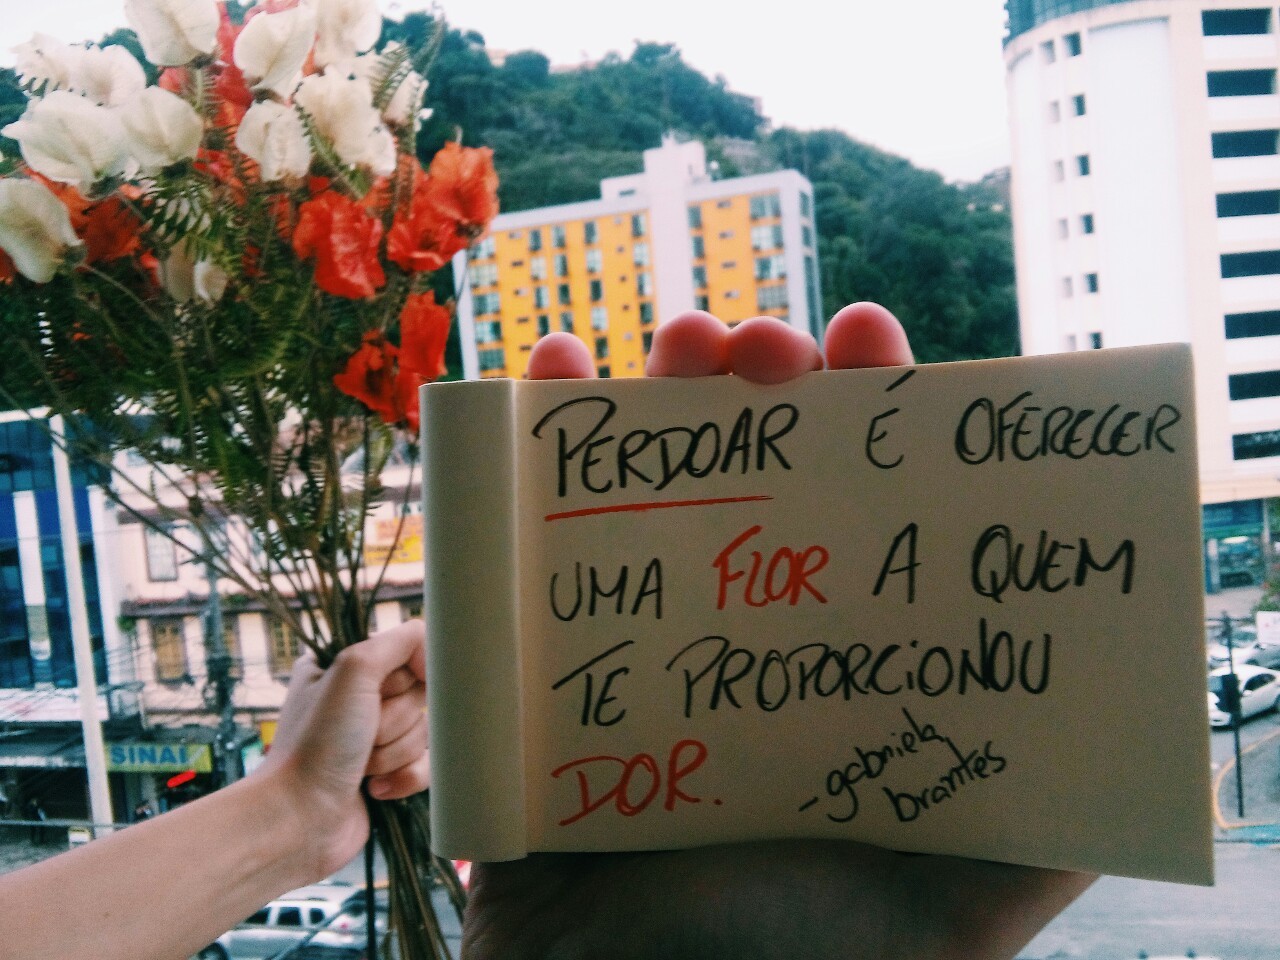 PERDOAR É OFERECER
UMA FLOR A QUEM
TE PROPORCIONOU
DOR.
-gabriela
brantes
SINAI